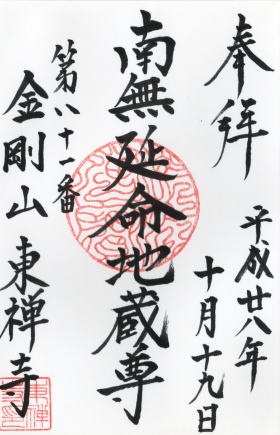 奉拝
平成廿八年
十月十九日
南無延命地蔵尊
第八十一番
金剛山
東禅寺